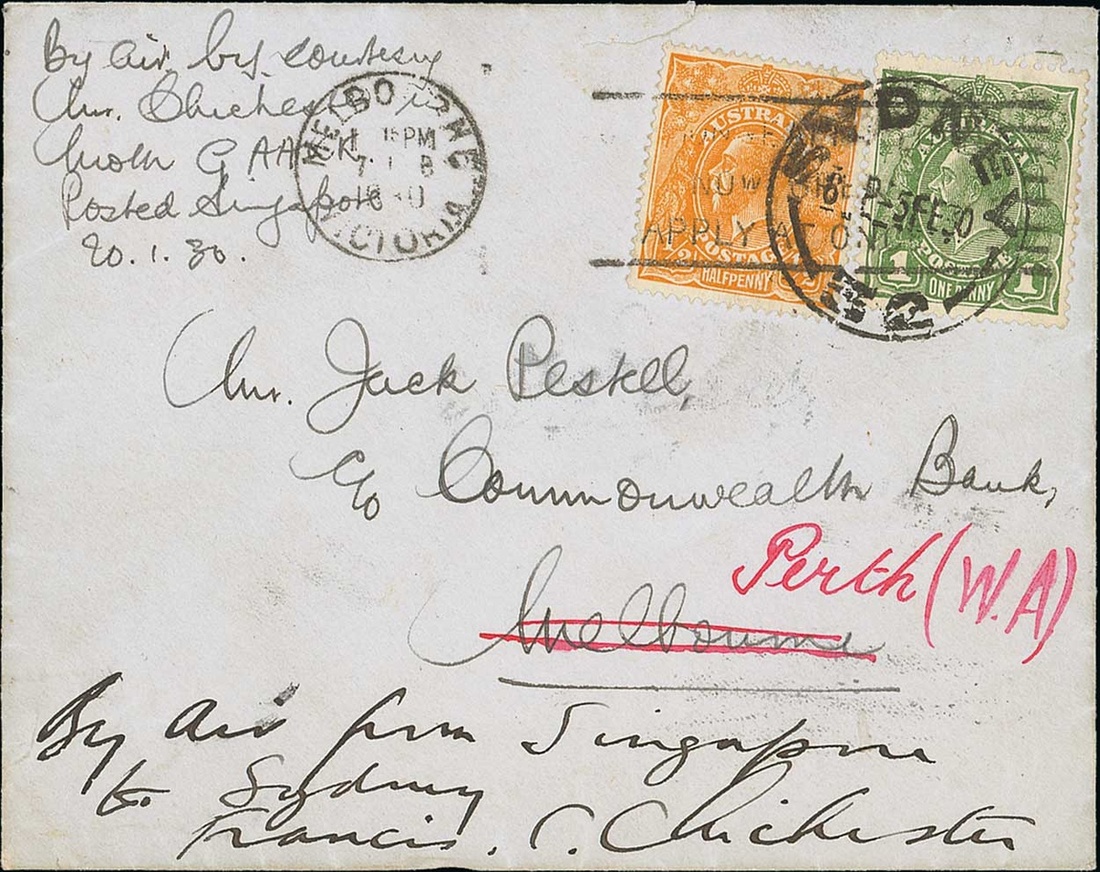 By air by courtesy
Mr. Chichester in
Moth G AAKK.
Posted Singapore
20.1.30.
MELBOURNE
15 PM
7 FEB
1930
VICTORIA
AUSTRALIA
POSTAGE
HALFPENNY
APPLY AT ONCE
SYDNEY
5 FE 30
AUSTRALIA
POSTAGE
1 ONE PENNY 1
Mr. Jack Peskell,
c/o Commonwealth Bank,
Perth (W.A)
Melbourne
By Air from Singapore
to Sydney
Francis. C. Chichester